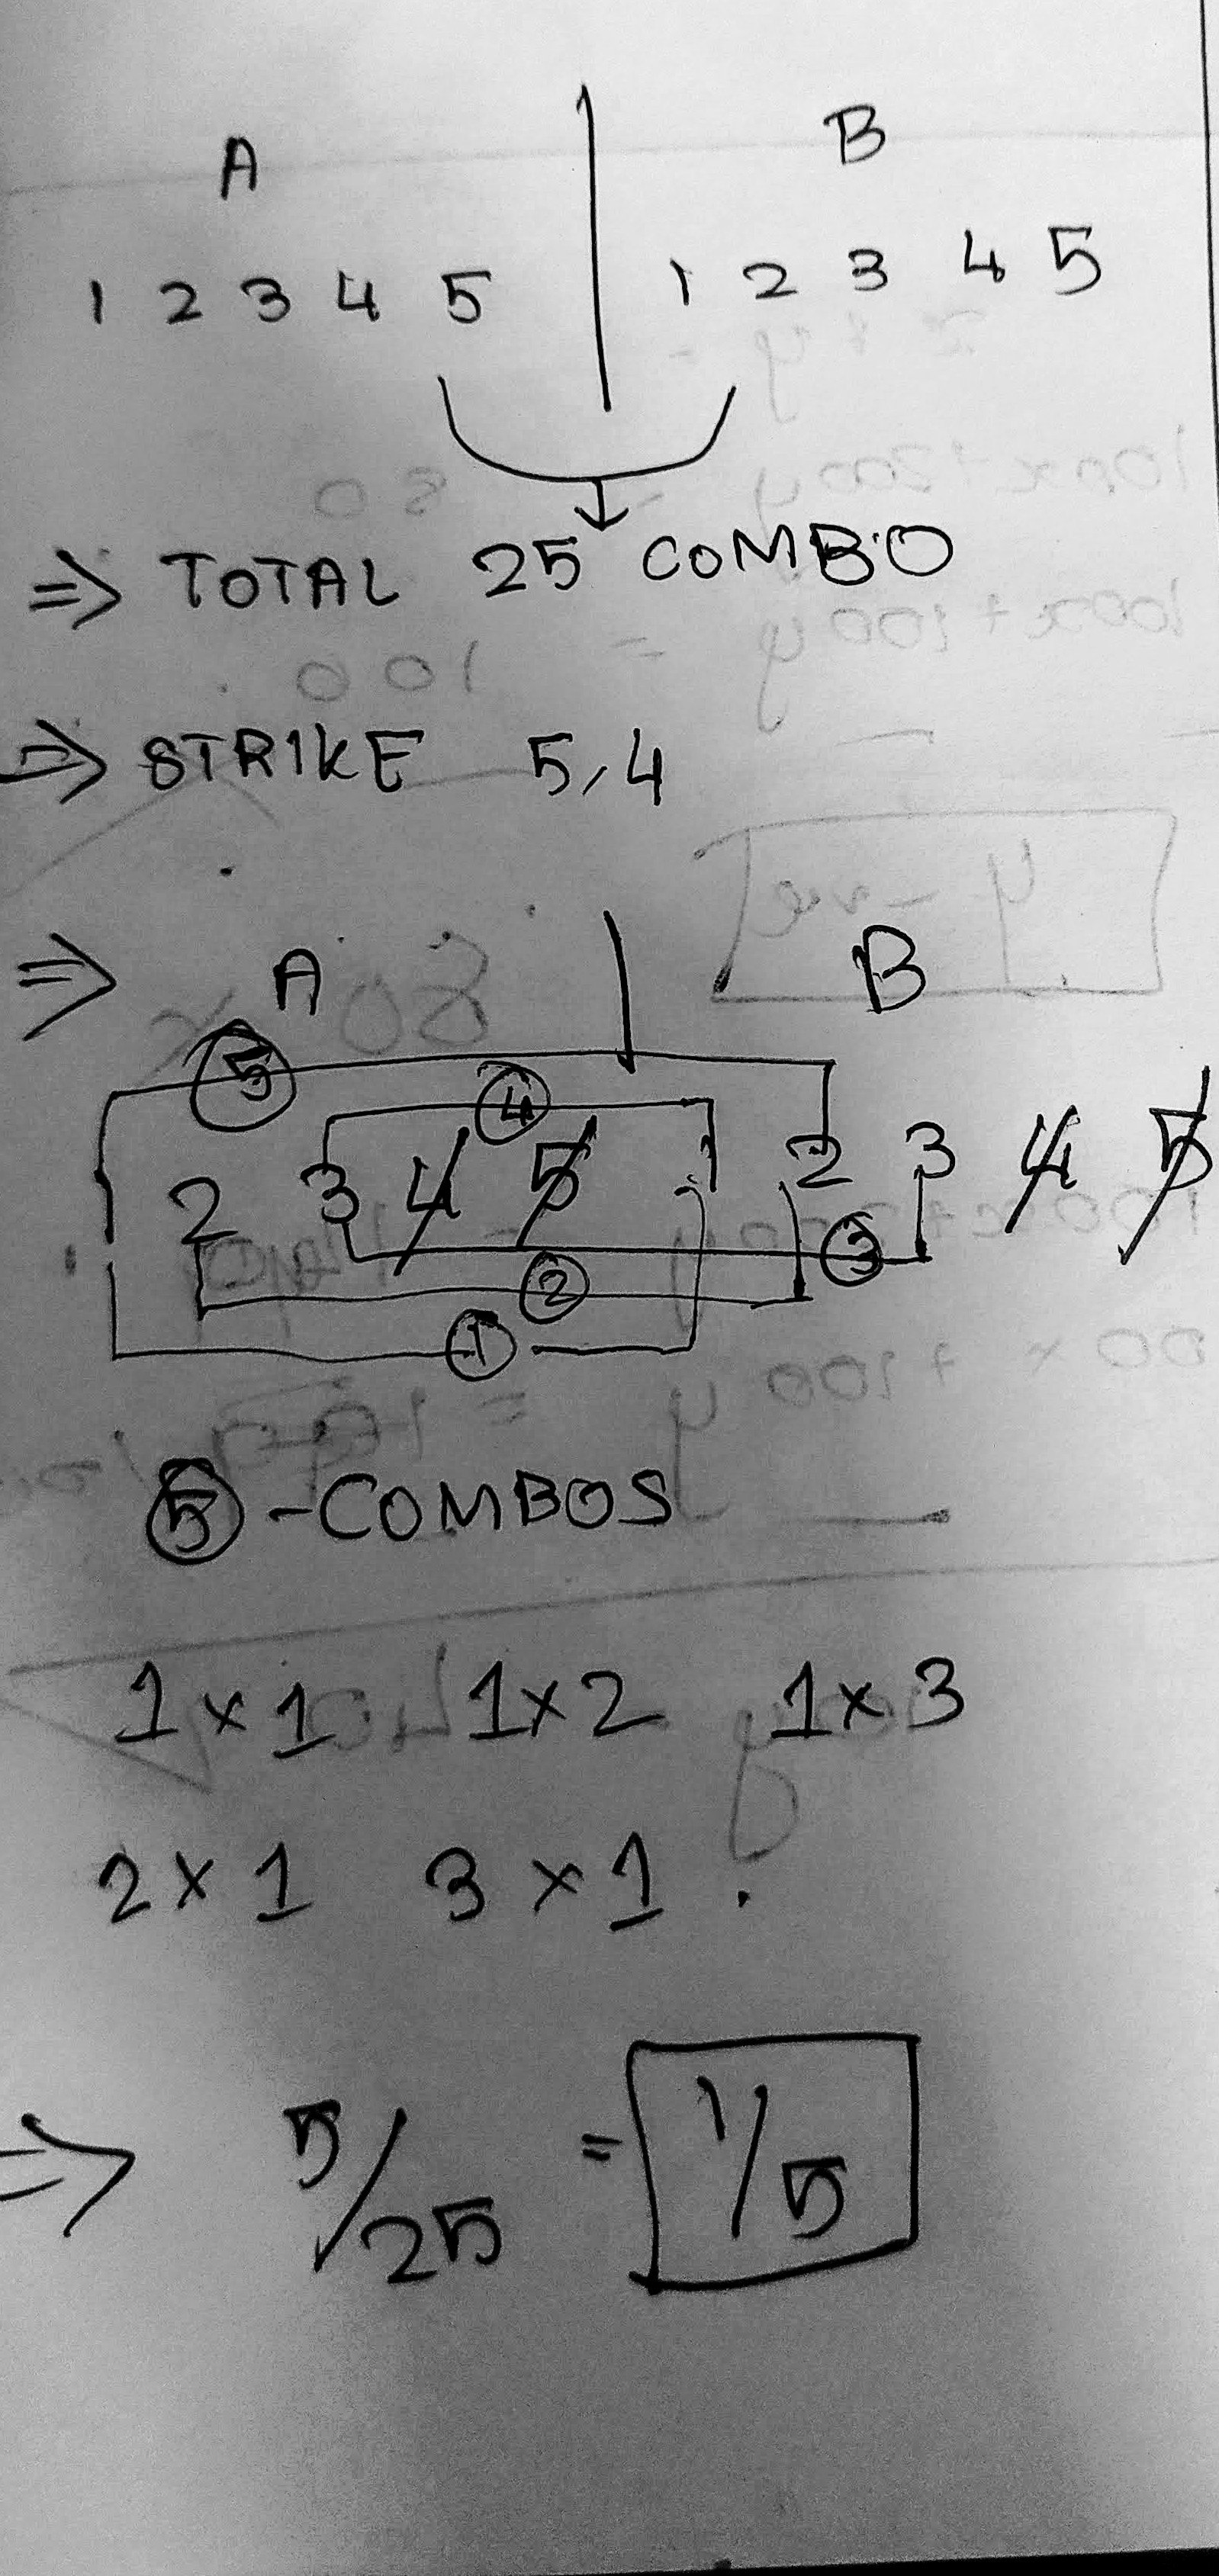 A B
1 2 3 4 5 1 2 3 4 5
⇒ TOTAL 25 COMBO
⇒ STRIKE 5,4
⇒ A B
5 4
1 2 3 4 5 1 2 3 4 5
3
2
1
5 - COMBOS
1 x 1 1x2 1x3
2 x 1 3 x 1 .
⇒ 5/25 = 1/5